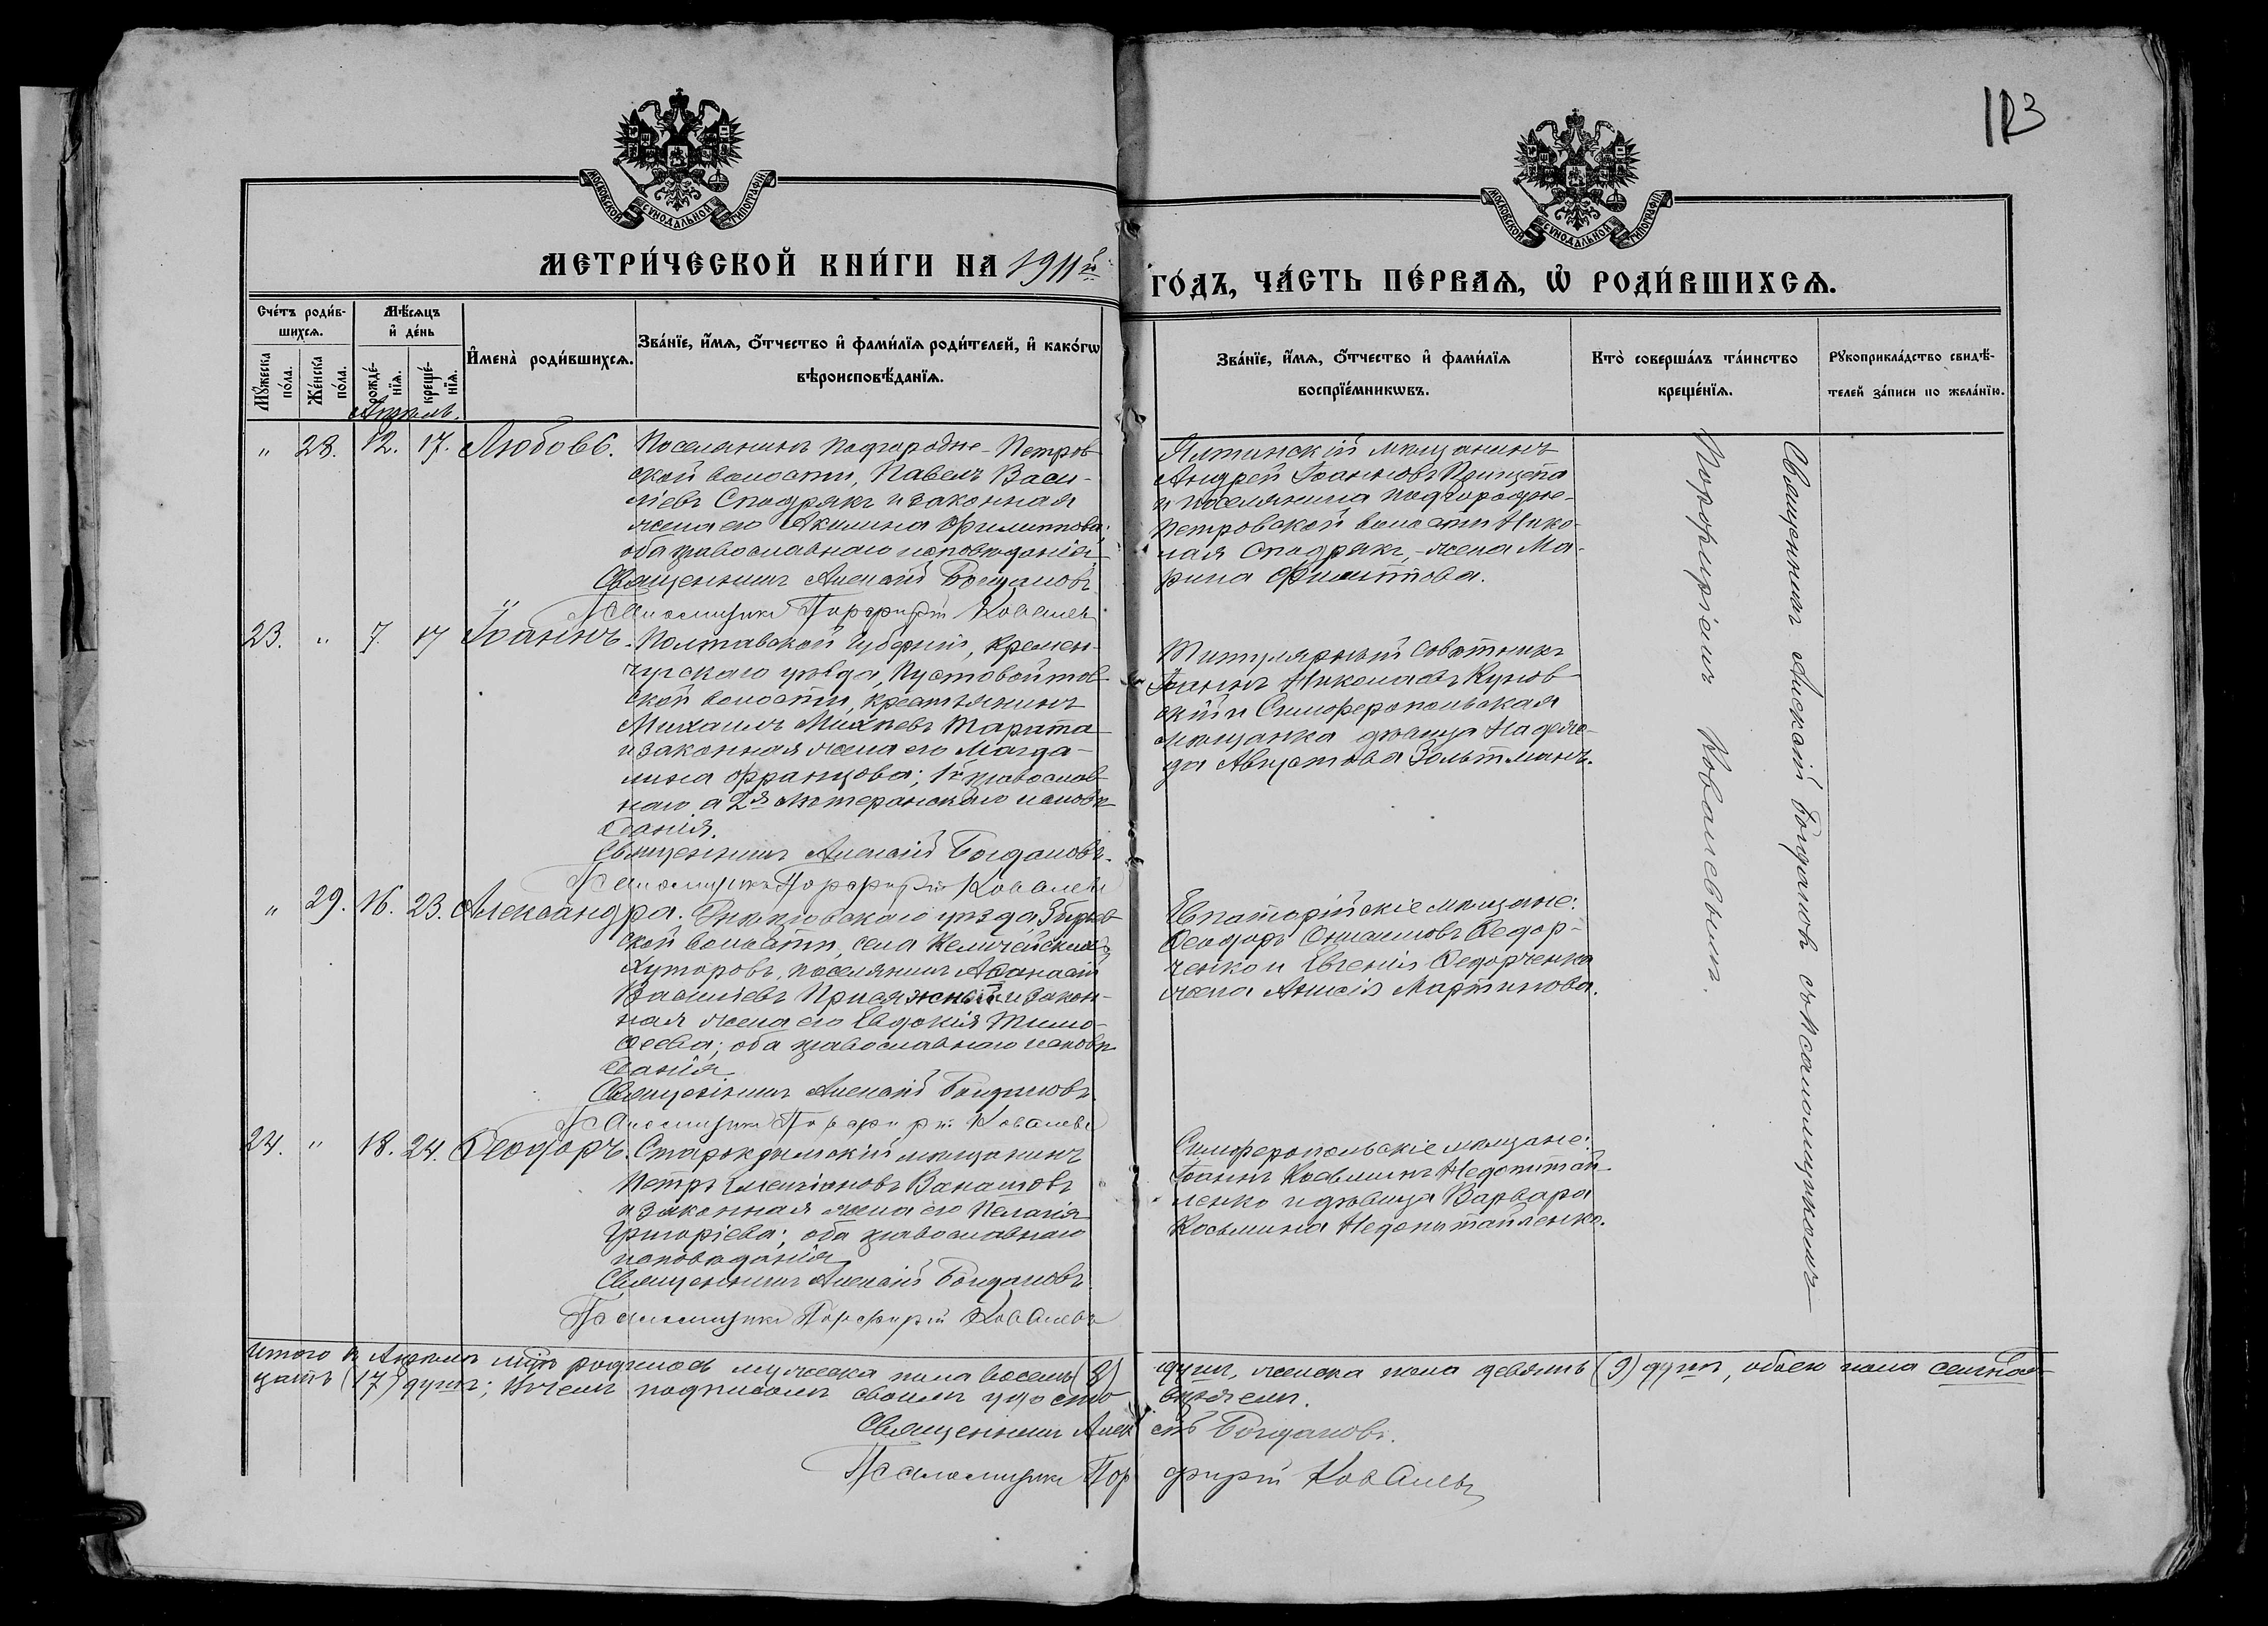 123
МОСКОВСКОЙ СУНОДАЛЬНОЙ ТИПОГРАФІИ
МОСКОВСКОЙ СУНОДАЛЬНОЙ ТИПОГРАФІИ
МЕТРИ́ЧЕСКОЙ КНИ́ГИ НА 1911й
ГО́ДЪ, ЧА́СТЬ ПЕ́РВАѦ, Ѡ҆ РОДИ́ВШИХСѦ.
Сче́тъ роди́в-
шихсѧ.
Мꙋ́жеска по́ла.
Же́нска по́ла.
Мѣ́сѧцъ
и҆ де́нь
рожде́-нїѧ.
креще́-нїѧ.
И҆мена̀ роди́вшихсѧ.
Зва́нїе, и҆́мѧ, ѻ҆́тчество и҆ фами́лїѧ роди́телей, и҆ како́гѡ
вѣроисповѣ́данїѧ.
Зва́нїе, и҆́мѧ, ѻ҆́тчество и҆ фами́лїѧ
воспрїе́мникѡвъ.
Кто̀ соверша́лъ та́инство
креще́нїѧ.
Рꙋкоприкла́дство свидѣ́-
телей за́писи по жела́нїю.
Апрель.
" 28. 12. 17. Любовь. Поселянинъ Подгородне-Петров
ской волости, Павелъ Васи-
ліевъ Сподрякъ и законная
жена его Акилина Филиппова;
оба православнаго исповѣданія
Священникъ Алексій Богдановъ
Псаломщикъ Порфирій Ковалевъ
Ялтинскій мѣщанинъ
Андрей Іоанновъ Прищепа
и поселянина Подгородне-
Петровской волости Нико-
лая Сподрякъ, жена Ма-
рина Филиппова.
23. " 7. 17 Іоаннъ. Полтавской губерніи, Кремен-
чугскаго уѣзда, Пустовойтов-
ской волости, крестьянинъ
Михаилъ Михѣевъ Тарата
и законная жена его Магда-
лина Францова; 1й православ-
наго а 2я лютеранскаго исповѣ-
данія.
Священникъ Алексій Богдановъ.
Псаломщикъ Порфирій Ковалевъ
Титулярный совѣтникъ
Іоаннъ Николаевъ Кунов-
скій и Симферопольская
мѣщанка дѣвица Надеж-
да Августова Зольтманъ.
" 29. 16. 23. Александра. уѣзда,
ской волости, села
Хуторовъ, поселянинъ Аѳанасій
Василіевъ Присяжный и закон-
ная жена его Евдокія Тимо-
ѳеева; оба православнаго исповѣ-
данія
Священникъ Алексій Богдановъ.
Псаломщикъ Порфирій Ковалевъ
Евпаторійскіе мѣщане:
Ѳеодоръ Онисимовъ Ѳедор-
ченко и Евгенія Ѳедорченка
жена Анисія Мартинова.
24. " 18. 24. Ѳеодоръ. Старокрымскій мѣщанинъ
Петръ Емельяновъ Ванатовъ
и законная жена его Пелагія
Григоріева; оба православнаго
исповѣданія
Священникъ Алексій Богдановъ.
Псаломщикъ Порфирій Ковалевъ
Симферопольскіе мѣщане:
Іоаннъ Косьминъ Недопытай-
ленко и дѣвица Варвара
Косьмина Недопытайленко.
Священникъ Алексій Богдановъ съ Псаломщикомъ
Порфиріемъ Ковалевымъ.
Итого въ Апрелѣ м-цѣ родилось мужеска пола восемь (8) душъ, женска пола девять (9) душъ, обоего пола семнад-
цать (17) душъ; въ чемъ подписомъ своимъ удосто-
вѣряемъ.
Священникъ Алексій Богдановъ.
Псаломщикъ Порфирій Ковалевъ